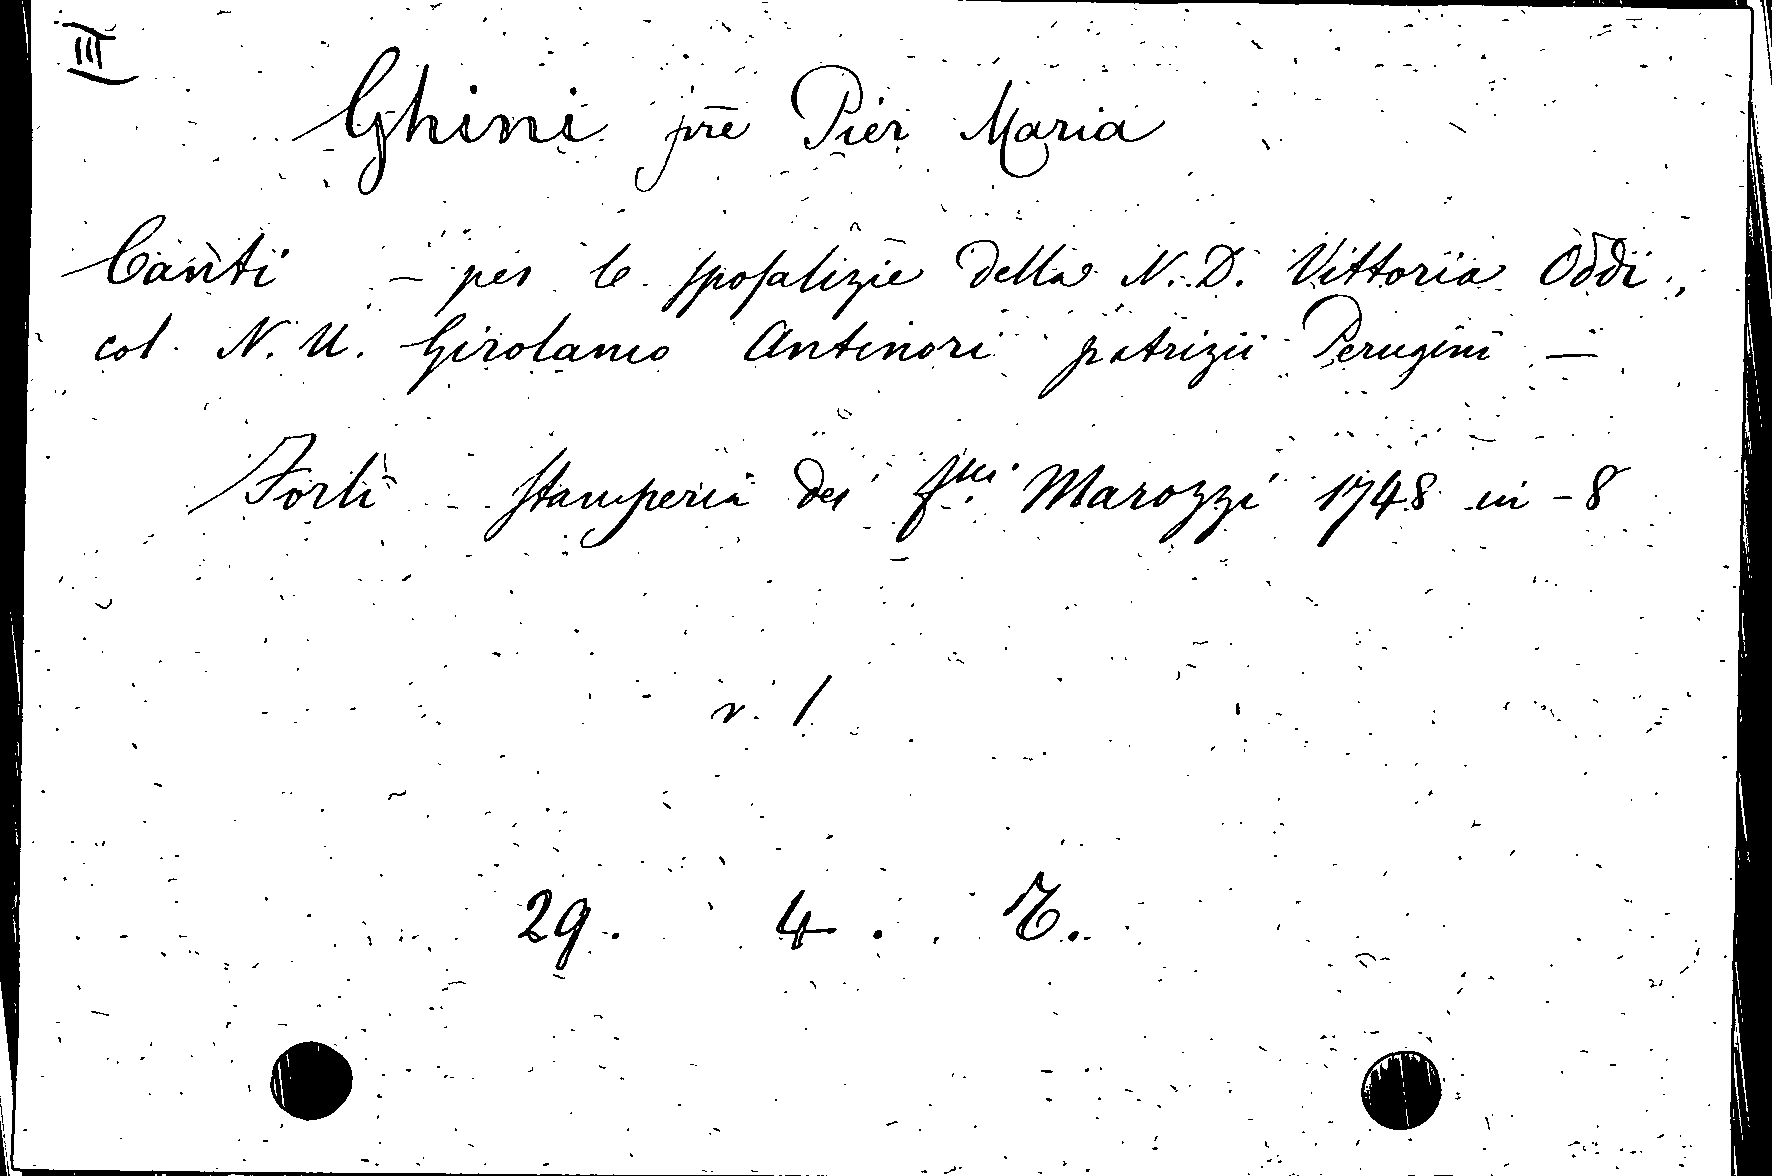 III
Ghini pre Pier Maria
Canti - per le sposalizie della N. D. Vittoria Oddi,
col N. U. Girolamo Antinori patrizii Perugini —
Forlì Stamperia dei flli Marozzi 1748 in-8
v. 1
29. 4.